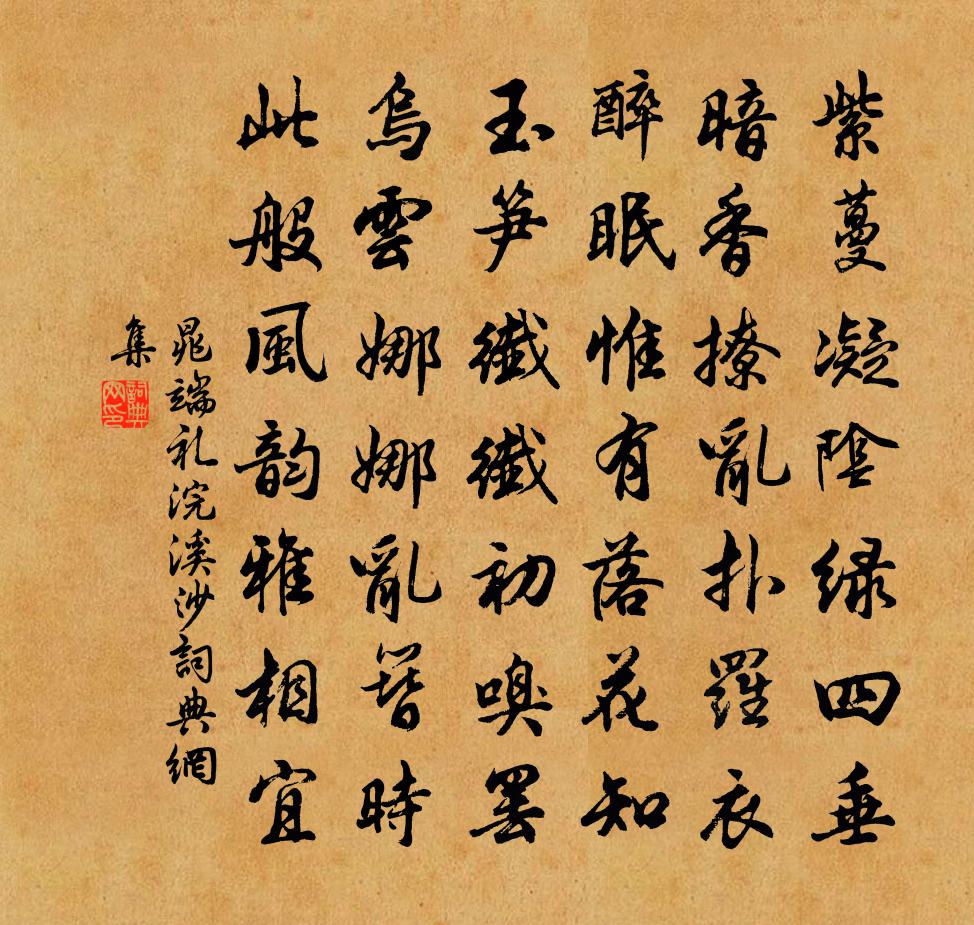 紫蔓凝陰緑四垂
暗香撩亂扑羅衣
醉眠惟有落花知
玉笋纖纖初嗅罷
烏雲娜娜亂簪時
此般風韵雅相宜
晁端礼浣溪沙詞典網
集
詞典网印